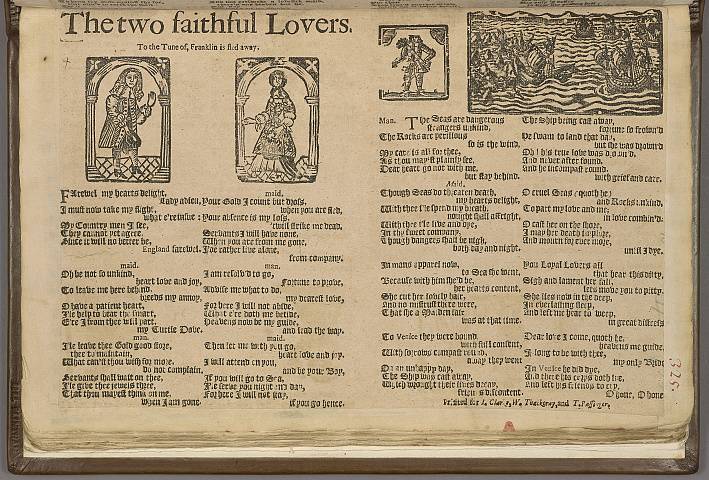 The two faithful Lovers.
To the Tune of, Franklin is fled away.
FArewel my hearts delight,
Lady adieu,
I must now take my flight,
what e're insue:
My Country men I see,
They cannot yet agree,
Since it will no better be,
England farewel.
maid.
Oh be not so unkind,
heart love and joy,
To leave me here behind,
breeds my annoy,
O have a patient heart,
I'le help to bear the smart,
E're I from thee will part,
my Turtle Dove.
man.
I'le leave thee Gold good store,
thee to maintain,
What can'st thou wish for more,
do not complain,
Servants shall wait on thee,
I'le give thee jewels three,
That thou mayest think on me,
when I am gone.
maid.
Your Gold I count but dross,
when you are fled,
Your absence is my loss,
'twill strike me dead,
Servants I will have none,
When you are from me gone,
I've rather live alone,
from company.
man.
I am resolv'd to go,
Fortune to prove,
Advise me what to do,
my dearest love,
For here I will not abide,
What e're doth me betide,
Heavens now be my guide,
and lead the way.
maid.
Then let me with you go,
heart love and joy,
I will attend on you,
and be your Boy,
If you will go to Sea,
I'le serve you night and day,
For here I will not stay,
if you go hence.
Man.
The Seas are dangerous
strangers unkind,
The Rocks are perillous
so is the wind,
My care is all for thee,
As thou may'st plainly see,
Dear heart go not with me,
but stay behind.
Maid,
Though Seas do threaten death,
my hearts delight,
With thee I'le spend my breath,
nought shall affright,
With thee I'le live and dye,
In thy sweet company,
Though dangers shall be nigh,
both day and night.
In mans apparel now,
to Sea she went,
Because with him she'd be,
her hearts content,
She cut her lovely hair,
And no mistrust there were,
That she a Maiden fair
was at that time.
To Venice they were bound
with full consent,
With sorrows compast round,
away they went
On an unhappy day,
The Ship was cast away,
Which wrought their lives decay,
friends discontent.
The Ship being cast away,
fortune so frown'd
He swam to land that day,
but she was drown'd
Oh! his true love was drown'd,
And never after found,
And he incompast round,
with grief and care.
O cruel Seas (quoth he)
and Rocks unkind,
To part my love and me,
in love combin'd:
O cast her on the shore,
I may her death implore,
And mourn for evermore,
until I dye.
You Loyal Lovers all
that hear this ditty,
Sigh and lament her fall,
lets move you to pitty.
She lies now in the deep,
In everlasting sleep,
And left me here to weep,
in great distress
Dear love I come, quoth he,
heavens me guide.
I long to be with thee,
my only Bride
In Venice he did dye,
And left his friends to cry,
O hone, O hone
Printed for I. Clarke, W. Thackeray, and T. Passenger,
325